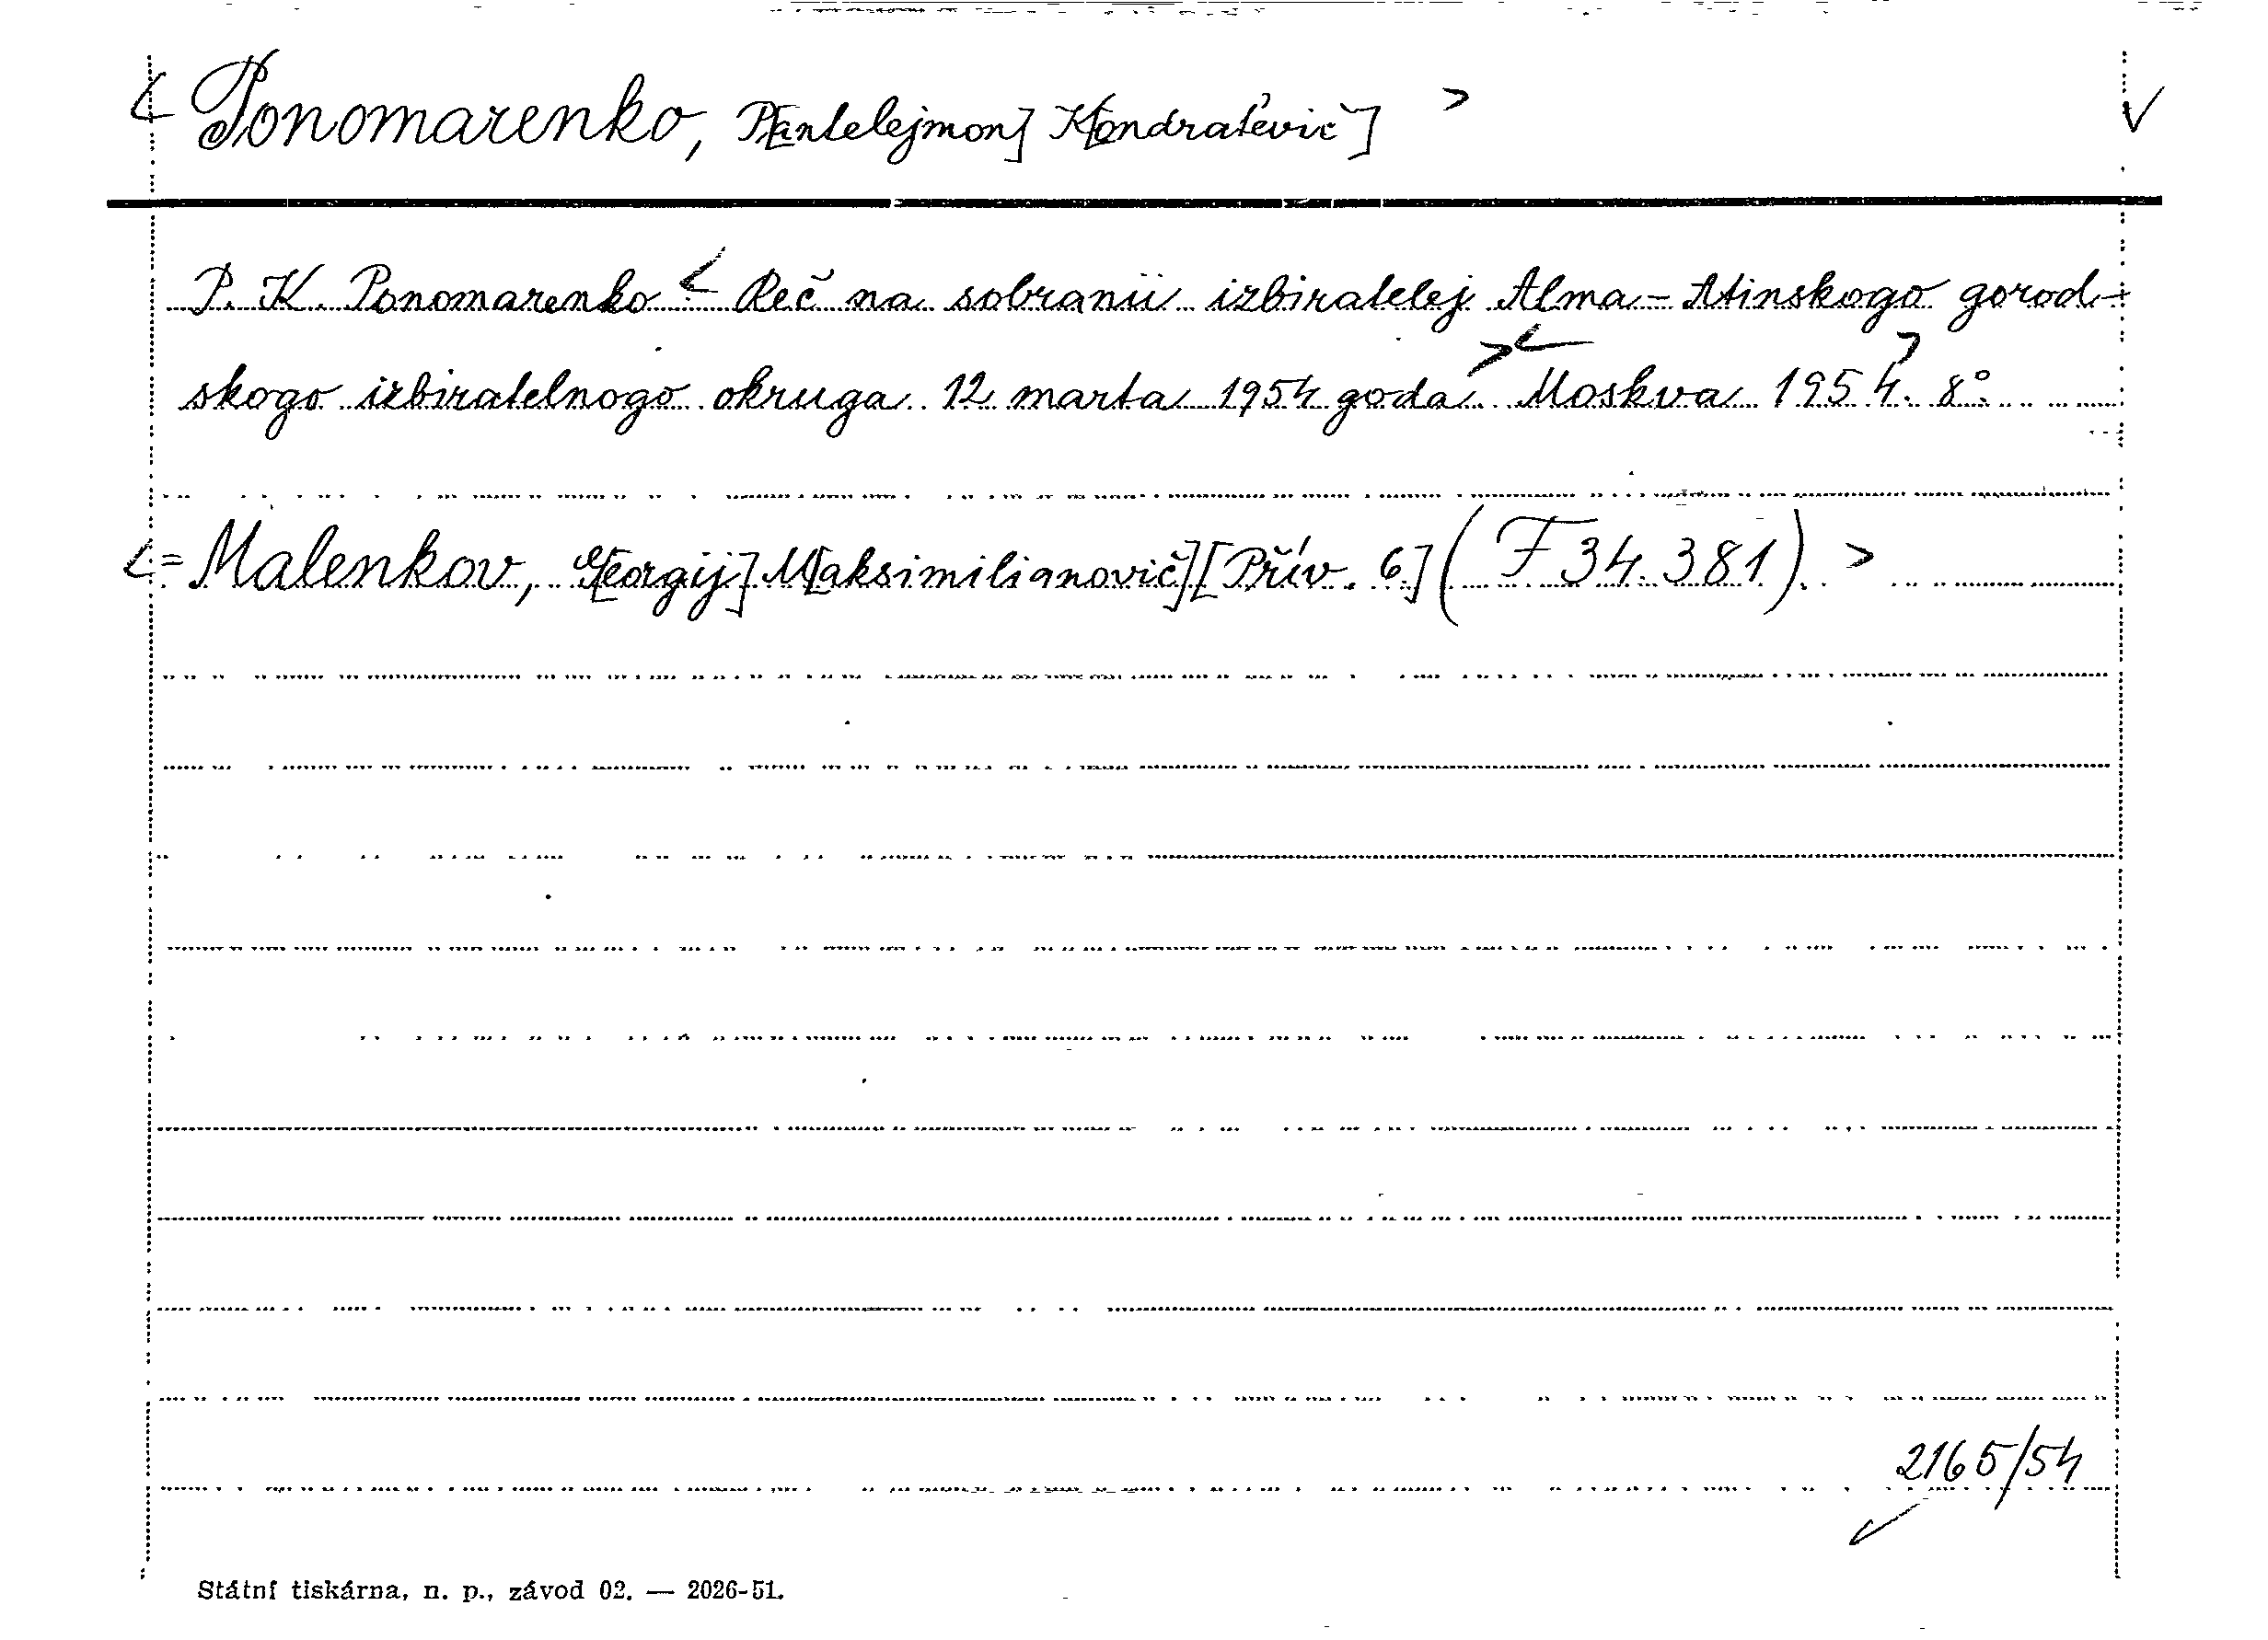 < Ponomarenko, P[antelejmon] K[ondrat'evič] >
P. K. Ponomarenko < Reč na sobranii izbiratelej Alma-Atinskogo gorod-
skogo izbiratelnogo okruga 12 marta 1954 goda. >< Moskva 1954. > 8°.
<= Malenkov, G[eorgij] M[aksimilianovič] [Přív. 6] (F 34.381). >
2165/54
Státní tiskárna, n. p., závod 02. — 2026-51.